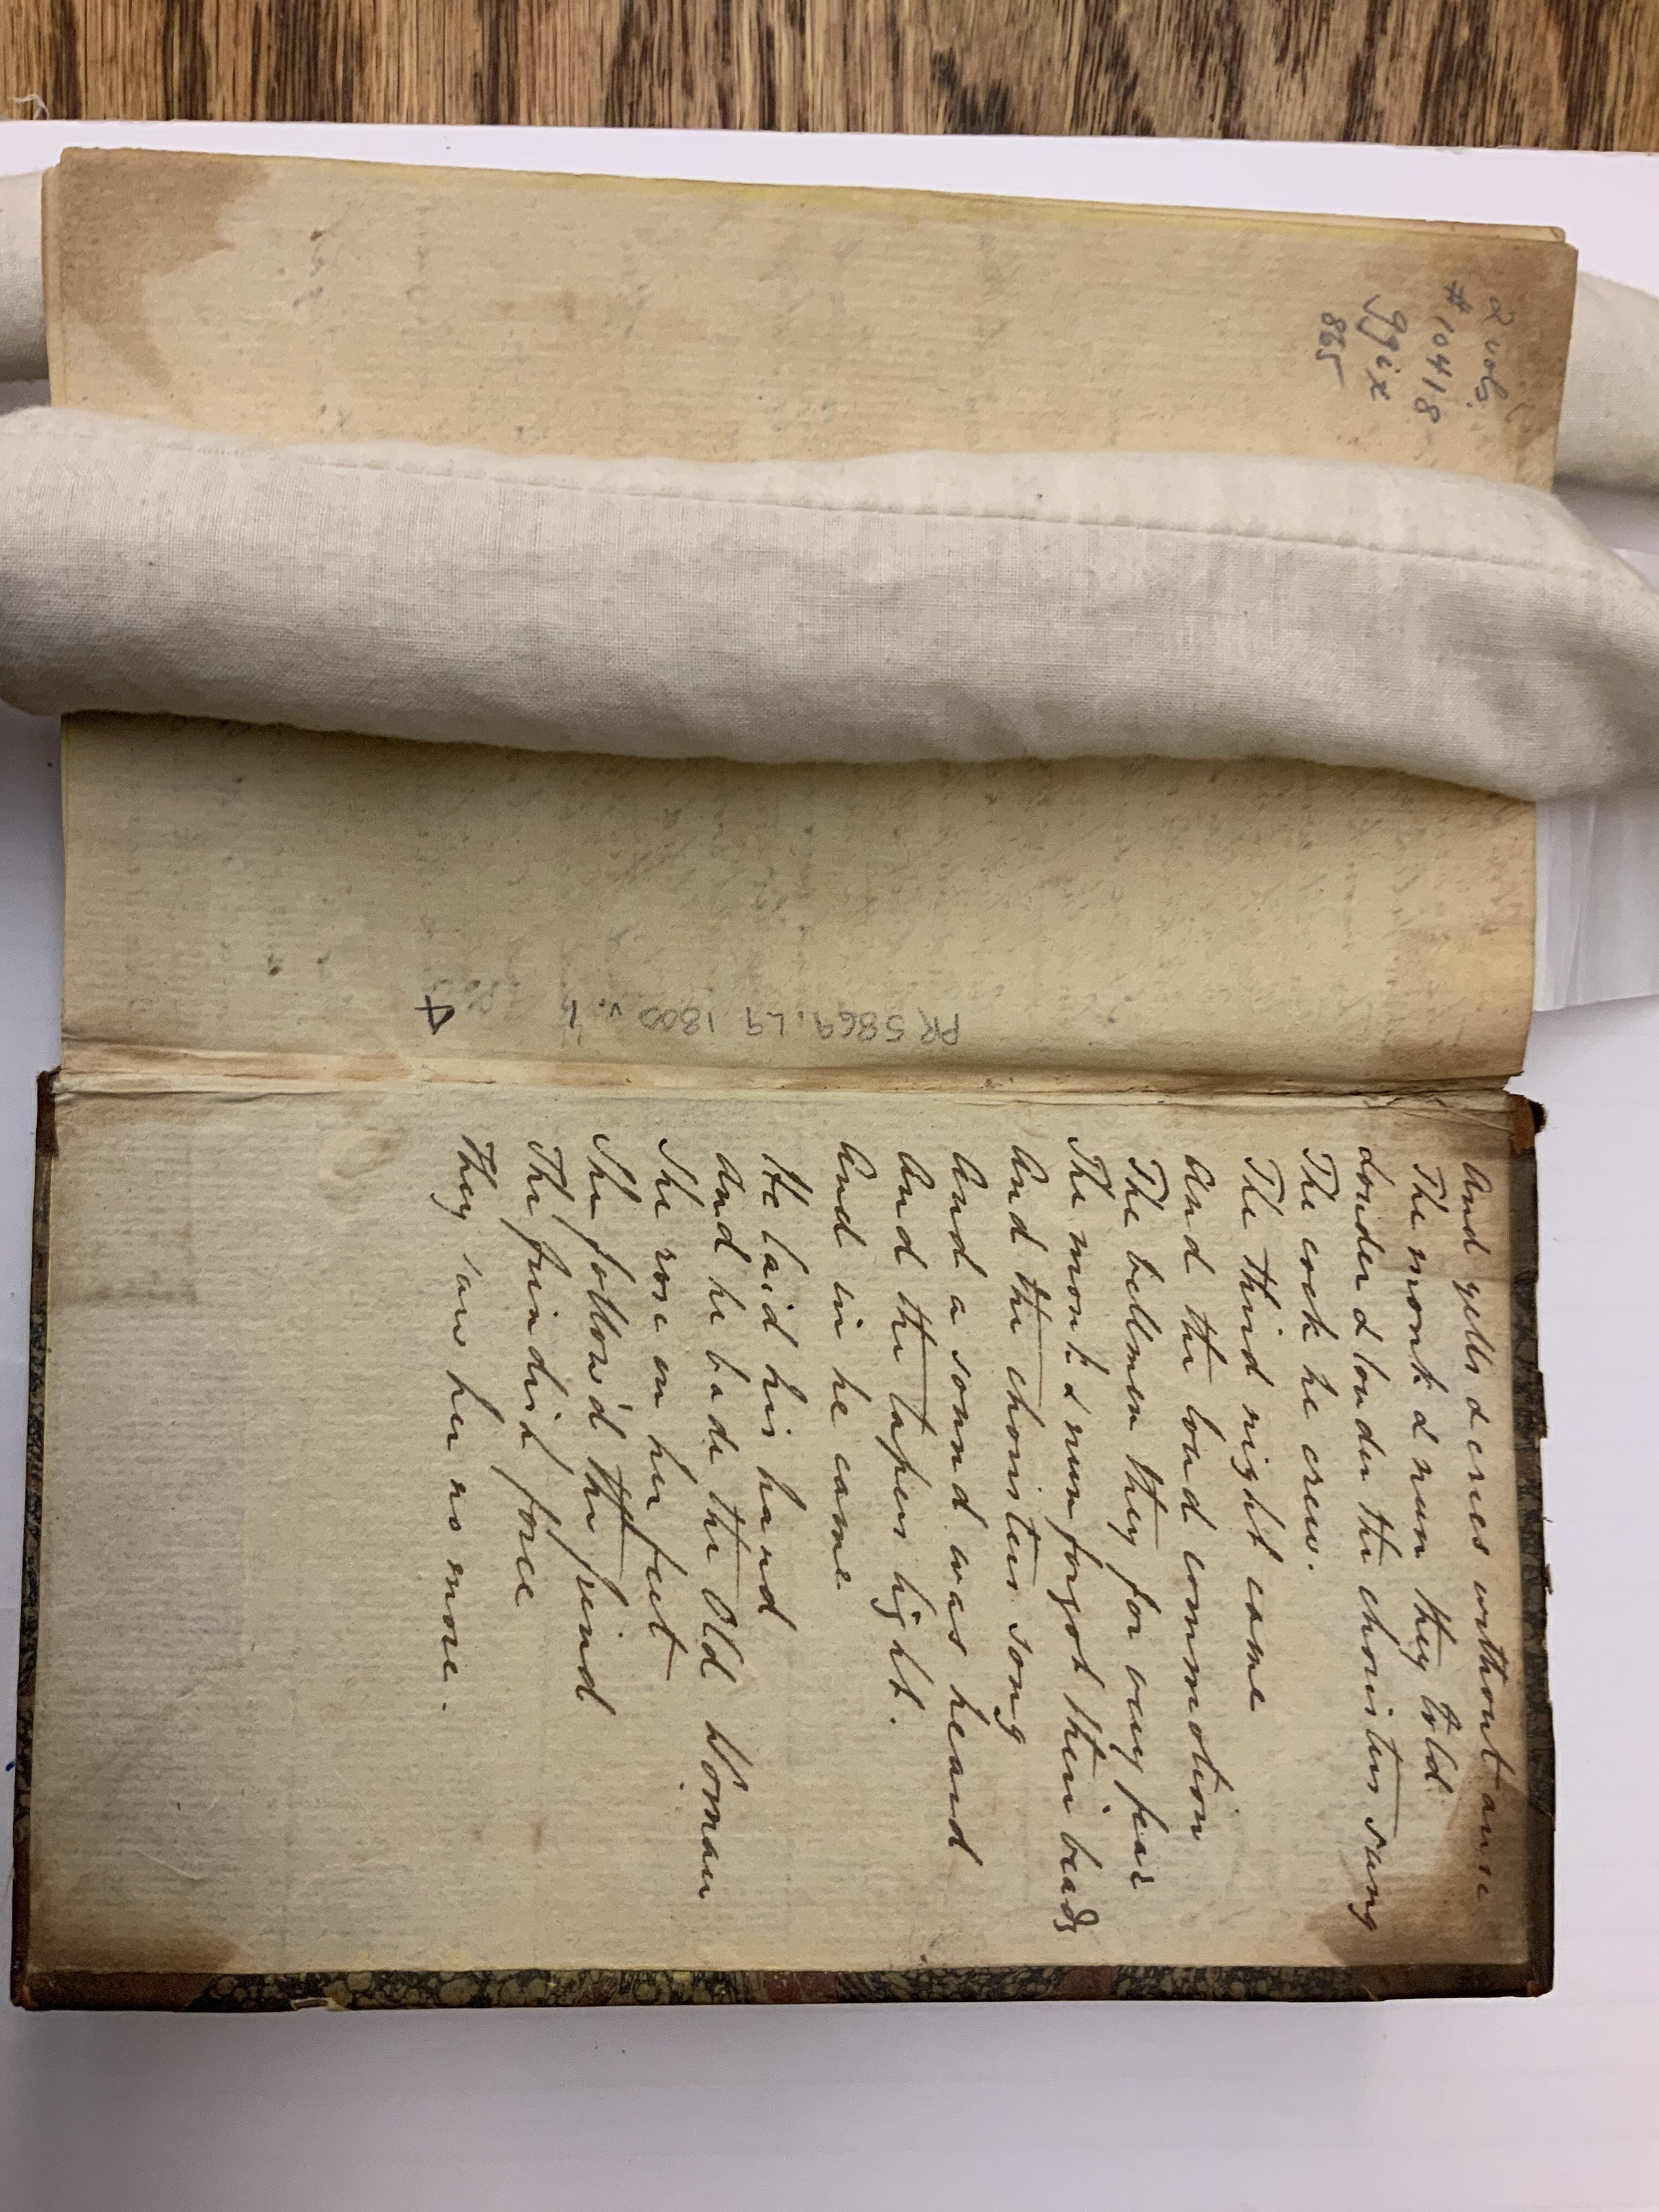 And yells & cries without arise
The monk & nun they told
Louder & louder the choristers sung
The cock he crew.
The third night came
And the loud commotion
The bellmen they for very fear
The monk & nun forgot their beads
And the choristers song
And a sound was heard
And the tapers light.
And in he came
He laid his hand
And he bade the Old Woman
She rose on her feet
She follow'd the fiend
The fiend's force
They saw her no more.
2 vols.
#10418
ggix
865
PR 5869. L9 1800 v. 1
4